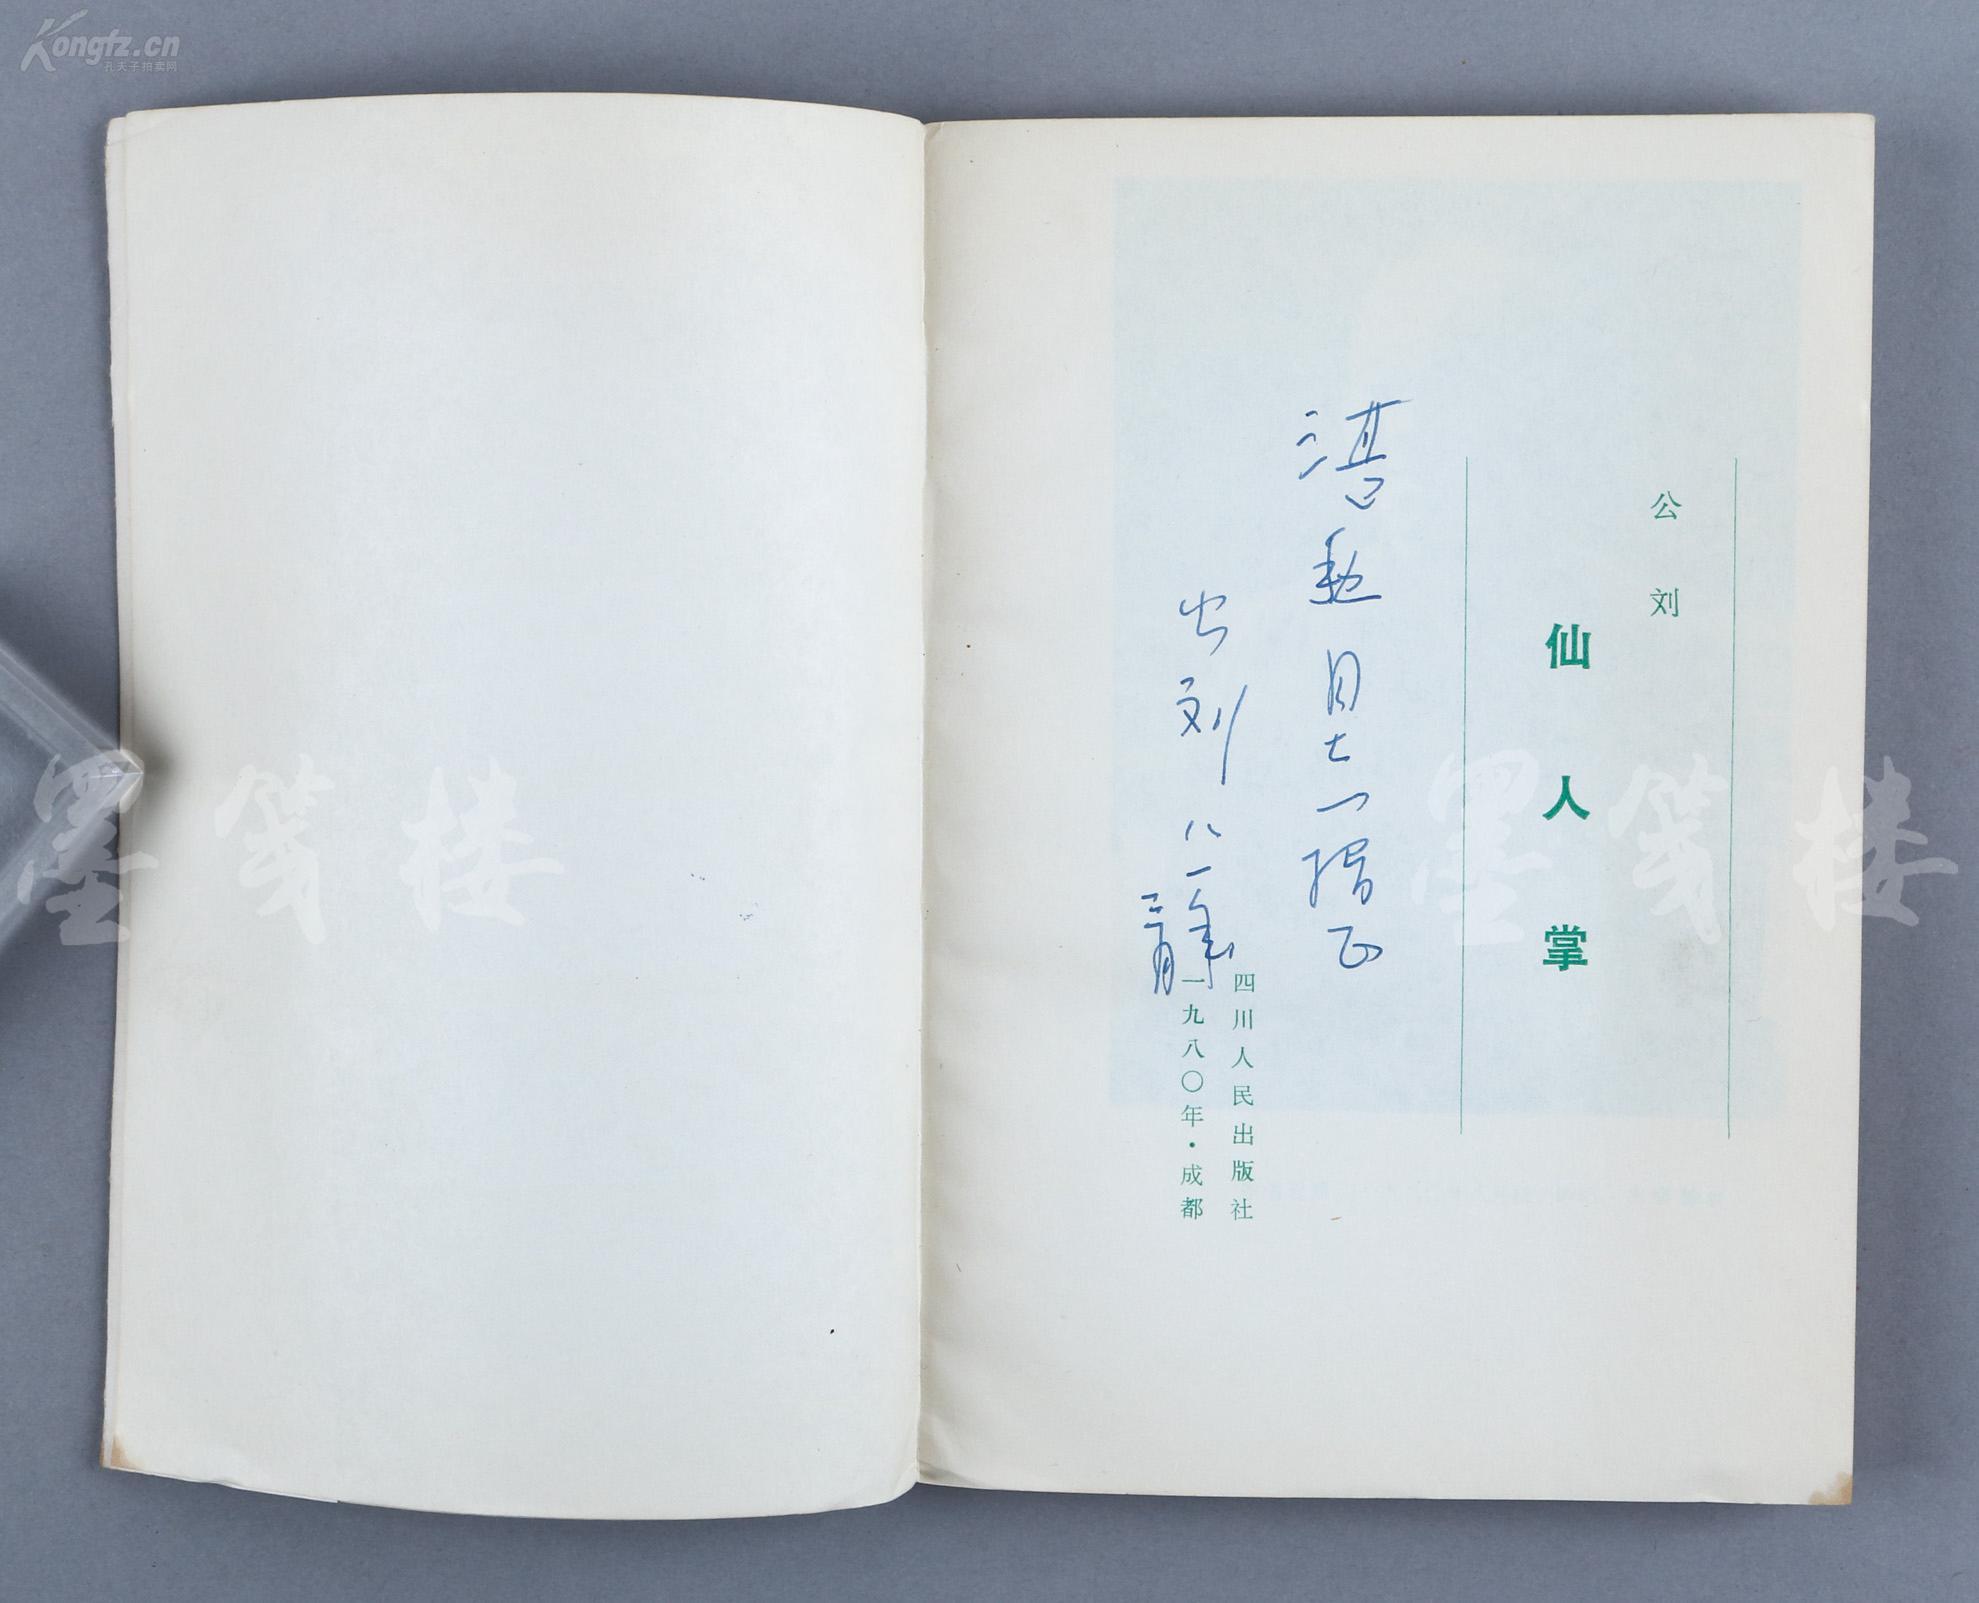 Kongfz.cn
孔夫子拍卖网
公刘
仙人掌
同志指正
公刘 八一年
三月
四川人民出版社
一九八〇年·成都
墨笺楼
墨笺楼